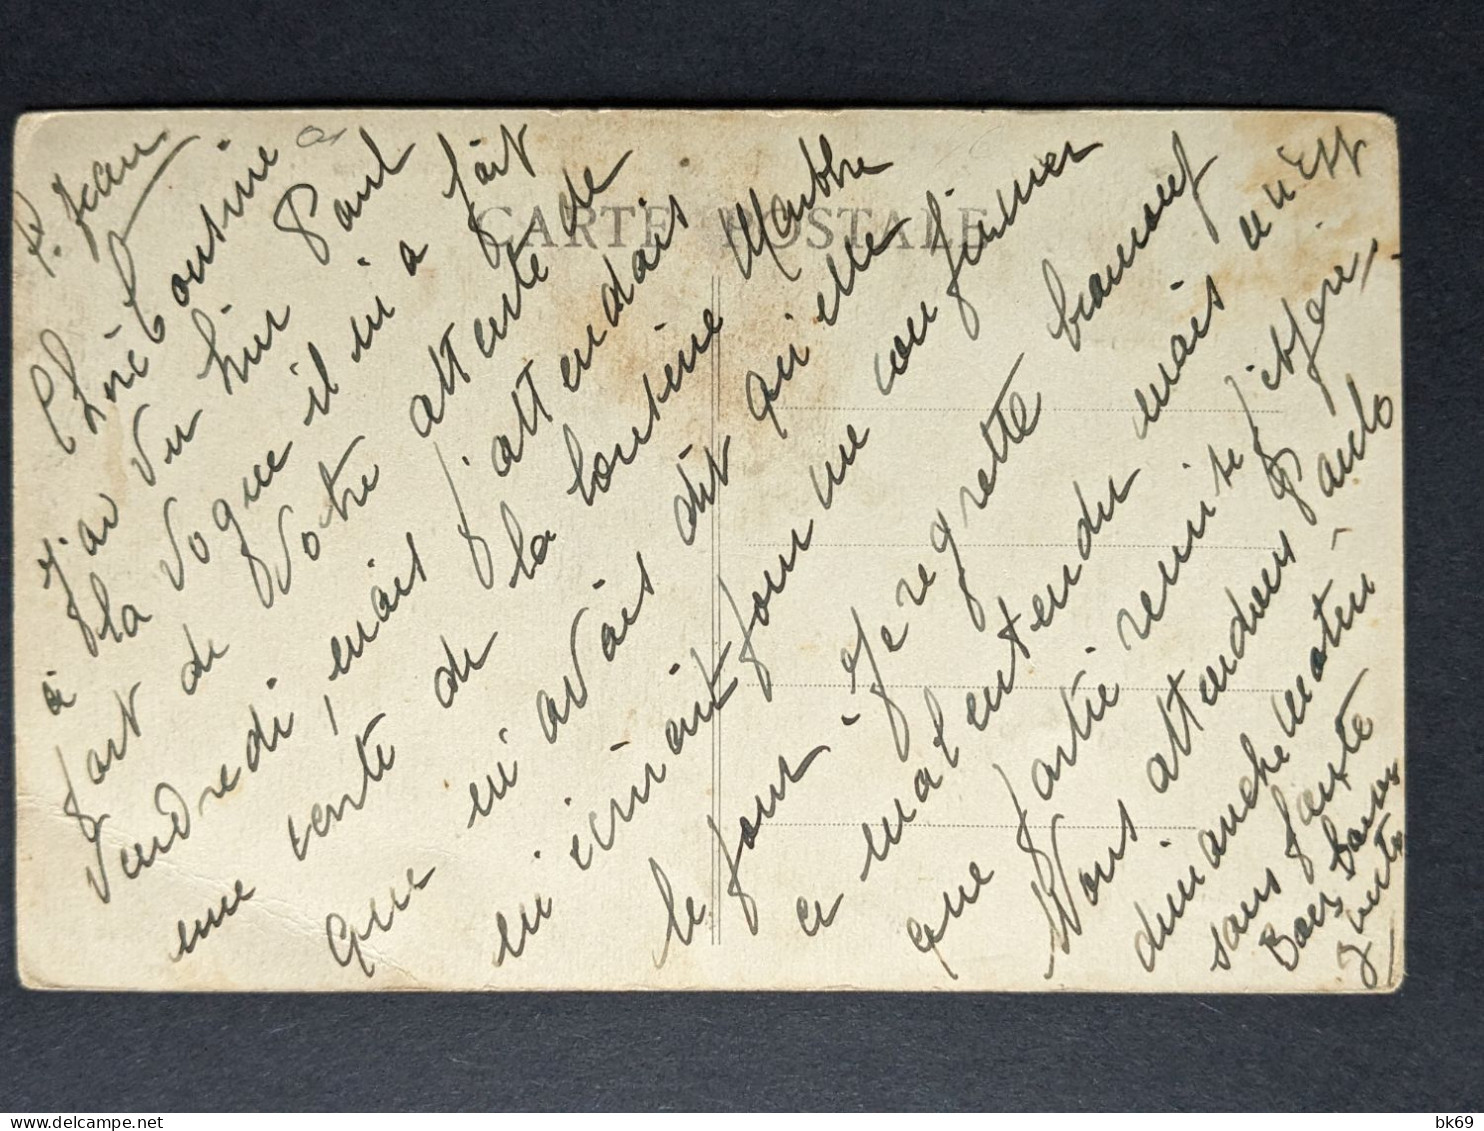 P. Jean
Chère Cousine
J'ai vu hier Paul
à la Vogue il m'a fait
part de Votre attente de
Vendredi, mais j'attendais
une carte de la Cousine Marthe
que m'avais dit qu'elle
m'écrirait pour me confirmer
le jour - Je regrette beaucoup
ce malentendu mais ce n'est
que partie remise j'espère,
Nous attendrons Paulo
dimanche matin -
sans faute
Bons Baisers
CARTE POSTALE
bk69